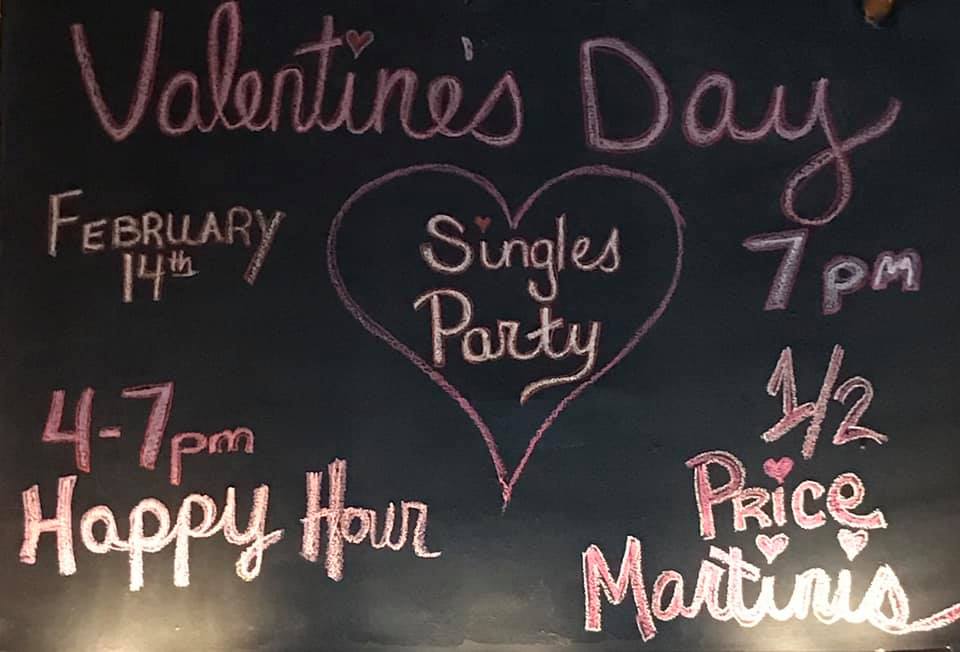 Valentine's Day
FEBRUARY
14th
Singles
Party
7pm
4-7pm
Happy Hour
1/2
PRice
Martinis